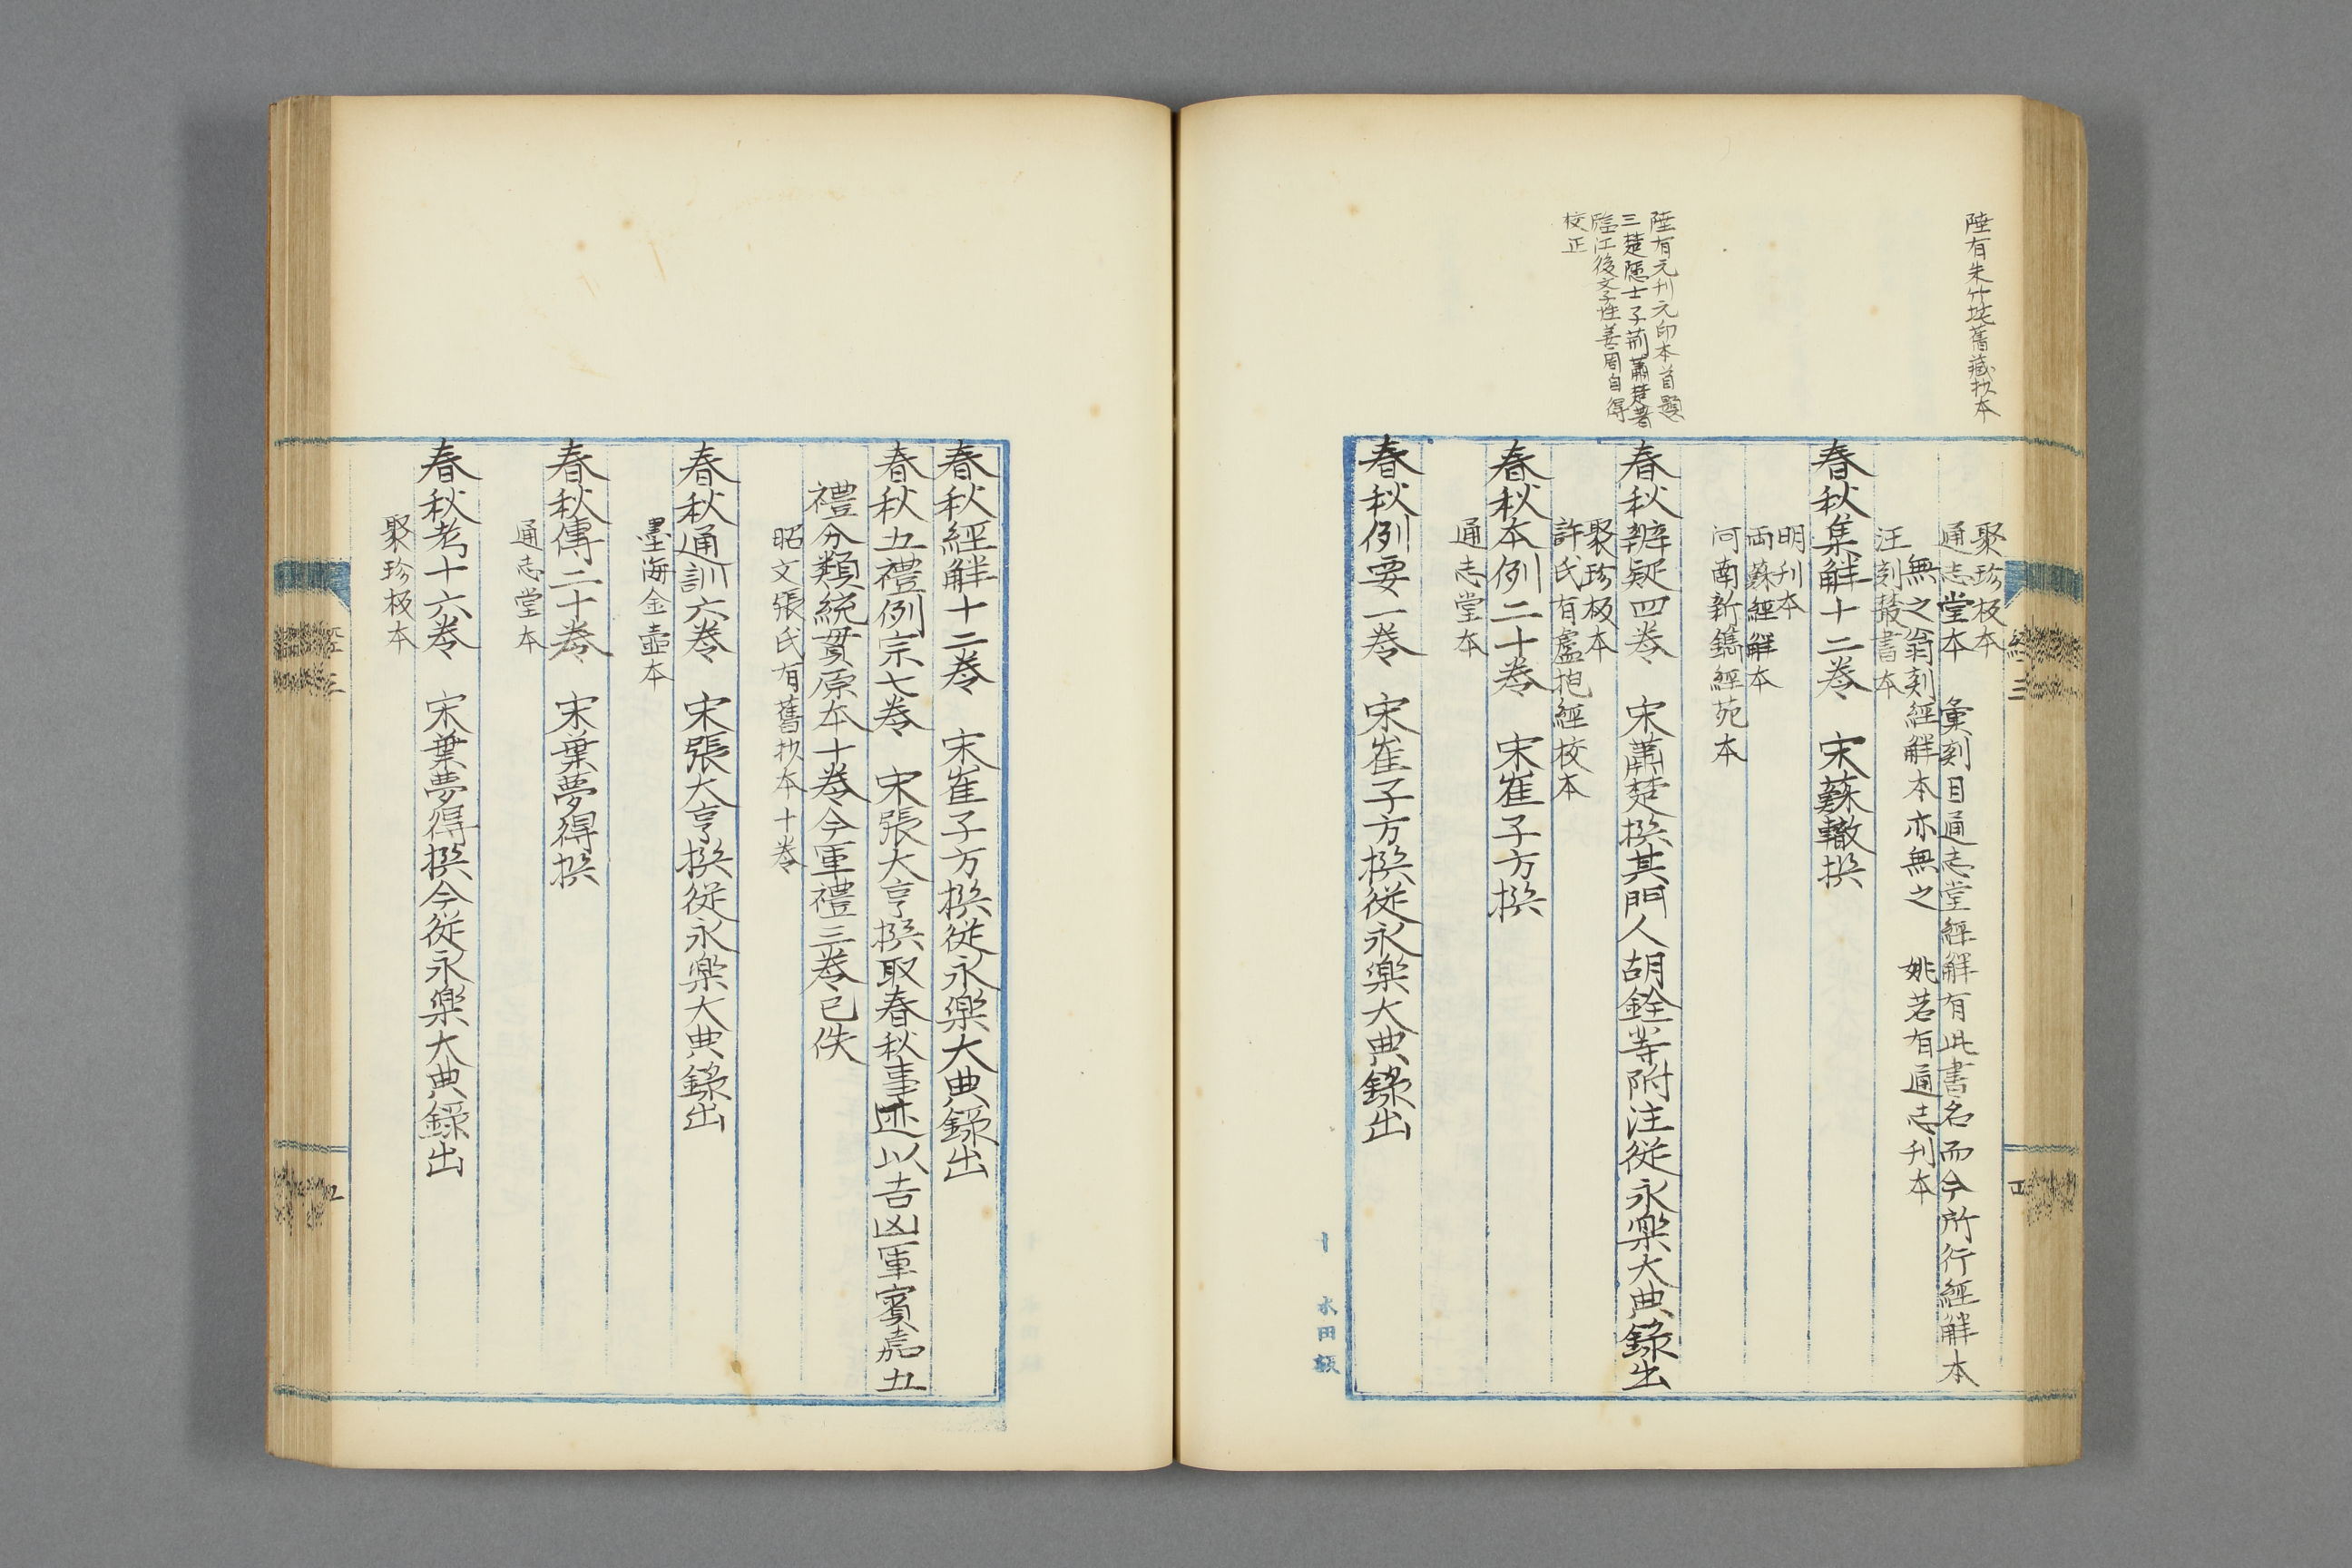 陸有朱竹垞舊藏抄本
聚珍板本
通志堂本　彙刻目通志堂經解有此書名而今所行經解本
無之翁刻經解本亦無之　姚若有通志刊本
汪刻叢書本
春秋集解十二卷　宋蘇轍撰
明刊本
兩蘇經解本
河南新鐫經苑本
陸有元刊元印本首題
三楚隱士子荊蕭楚著
臨江後文子性善周自得
校正
春秋辨疑四卷　宋蕭楚撰其門人胡銓等附注從永樂大典錄出
聚珍板本
許氏有盧抱經校本
春秋本例二十卷　宋崔子方撰
通志堂本
春秋例要一卷　宋崔子方撰從永樂大典錄出
春秋經解十二卷　宋崔子方撰從永樂大典錄出
春秋五禮例宗七卷　宋張大亨撰取春秋事迹以吉凶軍賓嘉五
禮分類統貫原本十卷今軍禮三卷已佚
昭文張氏有舊抄本十卷
春秋通訓六卷　宋張大亨撰從永樂大典錄出
墨海金壺本
春秋傳二十卷　宋葉夢得撰
通志堂本
春秋考十六卷　宋葉夢得撰今從永樂大典錄出
聚珍板本